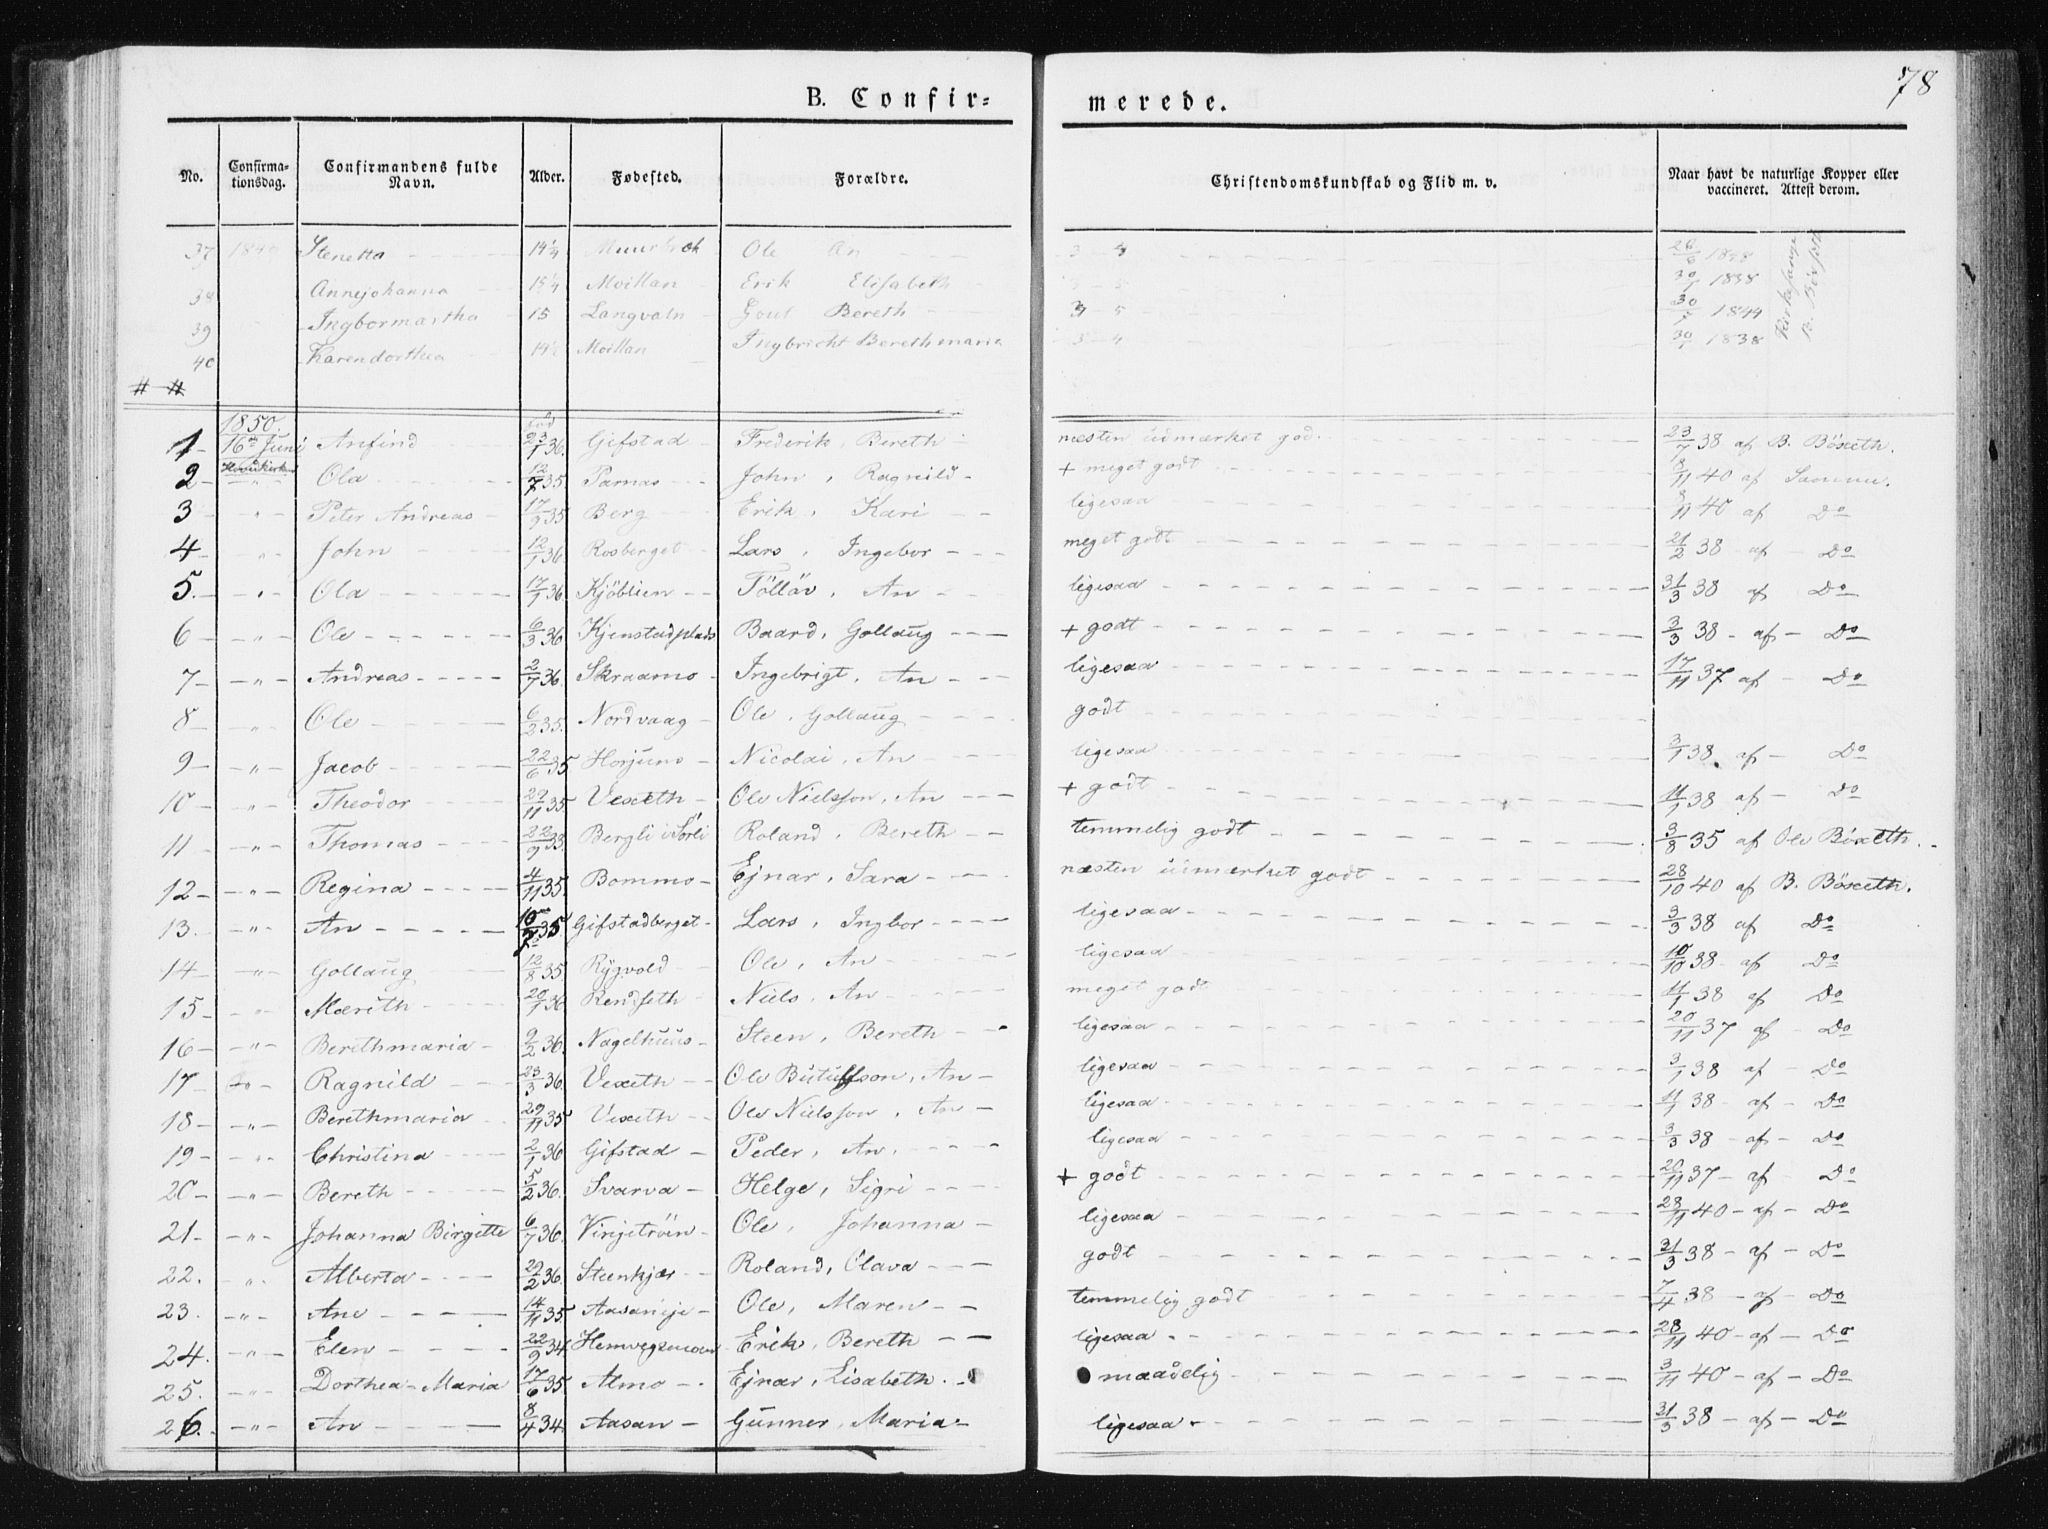 78
B. Confir- merede.
No. Confirma-tionsdag. Confirmandens fulde Navn. Alder. Fødested. Forældre. Christendomskundskab og Flid m. v. Naar havt de naturlige Kopper eller vaccineret. Attest derom.
37 1849 Stenetta 14 1/4 Muurbræk Ole An 3 26/6 1838
38 Annejohanna 15 1/4 Moillan Erik Elisabeth 30/1 1838
39 Ingbormartha 15 Langvatn Gout Bereth 3 5 30/7 1844
40 Karendorthea 14 1/2 Moillan Ingbricht Berethmaria 3 4 30/1 1838
1850. fød
1 16de Juni Anfind 23/1 36. Gifstad Frederik, Bereth næsten udmærket god. 23/7 38 af B. Böxeth.
2 " Ola 12/7 35 Parnas John, Ragnild + meget godt 8/11 40 af Samme.
3 " Peter Andreas 17/9 35 Berg Erik, Kari ligesaa 8/11 40 af Do
4 " John 12/1 36. Rosberget Lars, Ingebor meget godt 21/2 38 af Do
5. " Ola 17/1 36. Kjöblien Tölläv, An ligesaa 31/3 38 af Do
6 " Ole 6/3 36 Kjenstadplads Baard, Gollaug + godt 3/3 38 af Do
7 " Andreas 2/7 36. Skraamo Ingebrigt, An ligesaa 17/11 37 af Do
8 " Ole 6/2 35. Nordvaag Ole, Gollaug godt
9 " Jacob 22/6 35 Horjuns Nicolai, An ligesaa 3/1 38. af Do
10 " Theodor 29/11 35 Vexeth Ole Nielsson, An + godt 11/1 38 af Do
11 " Thomas 22/9 33. Bergli i Sörli Roland, Bereth temmelig godt 3/8 35 af Ole Böxeth.
12 " Regina 4/11 35. Bommo Ejnar, Sara næsten udmærket godt 28/10 40 af B. Böxeth.
13. " An 35 Gifstadberget Lars, Ingbor ligesaa 3/3 38 af Do
14 " Gollaug 12/8 35. Rÿgvold Ole, An ligesaa 10/10 38 af Do
15 " Marith 20/1 36 Rendseth Niels, An meget godt 11/1 38 af Do
16 " Berethmaria 9/2 36. Nagelhuus Steen, Bereth ligesaa 20/11 37 af Do
17 Do Ragnild 23/3 36. Vexeth Ole Butulfson, An ligesaa 3/1 38 af Do
18 " Berethmaria 29/11 35 Vexeth Ole Nielsson, An ligesaa 11/1 38 af Do
19 " Christina 2/1 36 Gifstad Peder, An, ligesaa 3/3 38 af Do
20 " Bereth 5/2 36. Svarva Helge, Sigri + godt 20/11 37 af Do
21 " Johanna Birgitte 6/7 36. Vinjetröen Ole, Johanna ligesaa 28/11 40 af Do
22. " Alberta 29/2 36. Steenkjær Roland, Olava godt 31/3 38 af Do
23. " Ane 14/11 35 Aasaneje Ole, Maren temmelig godt 7/4 38 af Do
24. " Elen 22/9 34 Erik, Bereth ligesaa 28/11 40 af Do
25. " Dorthea-Maria 17/6 35 Almo Ejnar, Lisabeth maadelig 3/11 40 af Do
26. " An 8/4 34. Aasan Gunner, Maria ligesaa 31/3 38 af Do